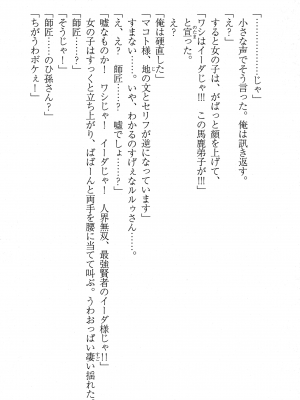 「………………じゃ」
小さな声でそう言った。俺は訊き返す。
「え？」
すると女の子は、がばっと顔を上げて、
「ワシはイーダじゃ!!! この馬鹿弟子が!!!」
と宣った。
え？
「マコト様、地の文とセリフが逆になっています」
すまない……。いや、わかるのすげぇなルルゥさん……。
「俺は硬直した」
「え、え？ 師匠……？ 嘘でしょ……？」
嘘なものか！ ワシじゃ！ イーダじゃ！ 人界無双、最強賢者のイーダ様じゃ!!」
女の子はすっくと立ち上がり、ばばーんと両手を腰に当てて叫ぶ。うわおっぱい凄い揺れた。
「師匠……？」
「そうじゃ！」
「師匠……のひ孫さん？」
「ちがうわボケぇ！」